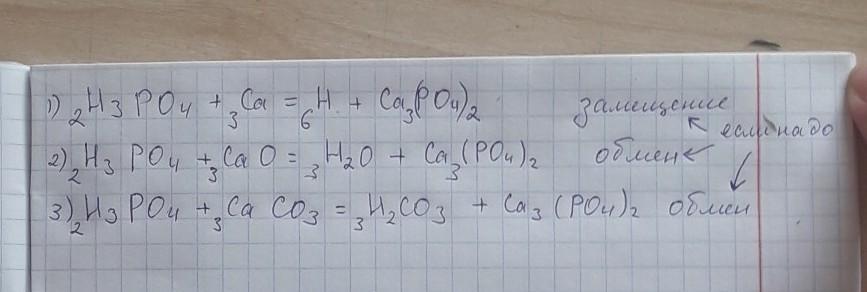 1) 2H3PO4 + 3Ca = 6H + Ca3(PO4)2 замещение
если надо
2) 2H3PO4 + 3CaO = 3H2O + Ca3(PO4)2 обмен
3) 2H3PO4 + 3CaCO3 = 3H2CO3 + Ca3(PO4)2 обмен